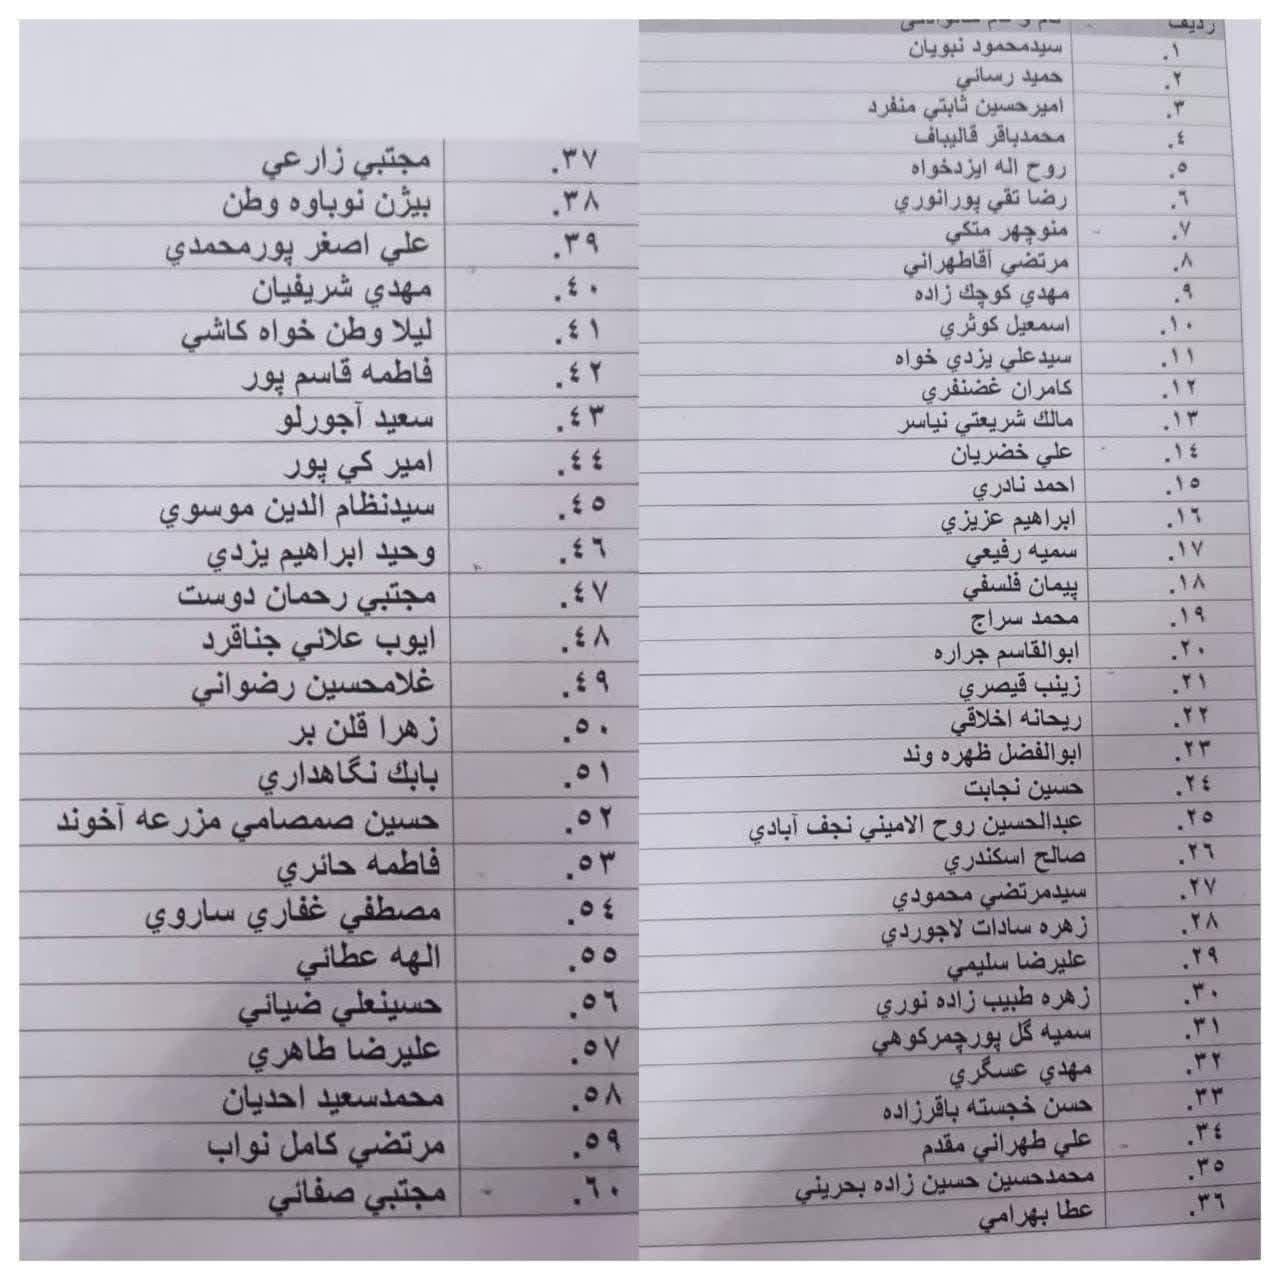 رديف نام و نام خانوادگي
١. سيدمحمود نبويان
٢. حميد رسائي
٣. اميرحسين ثابتي منفرد
٤. محمدباقر قاليباف
٥. روح اله ايزدخواه
٦. رضا تقي پورانوري
٧. منوچهر متكي
٨. مرتضي آقاطهراني
٩. مهدي كوچك زاده
١٠. اسمعيل كوثري
١١. سيدعلي يزدي خواه
١٢. كامران غضنفري
١٣. مالك شريعتي نياسر
١٤. علي خضريان
١٥. احمد نادري
١٦. ابراهيم عزيزي
١٧. سميه رفيعي
١٨. پيمان فلسفي
١٩. محمد سراج
٢٠. ابوالقاسم جراره
٢١. زينب قيصري
٢٢. ريحانه اخلاقي
٢٣. ابوالفضل ظهره وند
٢٤. حسين نجابت
٢٥. عبدالحسين روح الاميني نجف آبادي
٢٦. صالح اسكندري
٢٧. سيدمرتضي محمودي
٢٨. زهره سادات لاجوردي
٢٩. عليرضا سليمي
٣٠. زهره طبيب زاده نوري
٣١. سميه گل پورچمركوهي
٣٢. مهدي عسگري
٣٣. حسن خجسته باقرزاده
٣٤. علي طهراني مقدم
٣٥. محمدحسين حسين زاده بحريني
٣٦. عطا بهرامي
٣٧. مجتبي زارعي
٣٨. بيژن نوباوه وطن
٣٩. علي اصغر پورمحمدي
٤٠. مهدي شريفيان
٤١. ليلا وطن خواه كاشي
٤٢. فاطمه قاسم پور
٤٣. سعيد آجورلو
٤٤. امير كي پور
٤٥. سيدنظام الدين موسوي
٤٦. وحيد ابراهيم يزدي
٤٧. مجتبي رحمان دوست
٤٨. ايوب علائي جناقرد
٤٩. غلامحسين رضواني
٥٠. زهرا قلن بر
٥١. بابك نگاهداري
٥٢. حسين صمصامي مزرعه آخوند
٥٣. فاطمه حائري
٥٤. مصطفي غفاري ساروي
٥٥. الهه عطائي
٥٦. حسينعلي ضيائي
٥٧. عليرضا طاهري
٥٨. محمدسعيد احديان
٥٩. مرتضي كامل نواب
٦٠. مجتبي صفائي